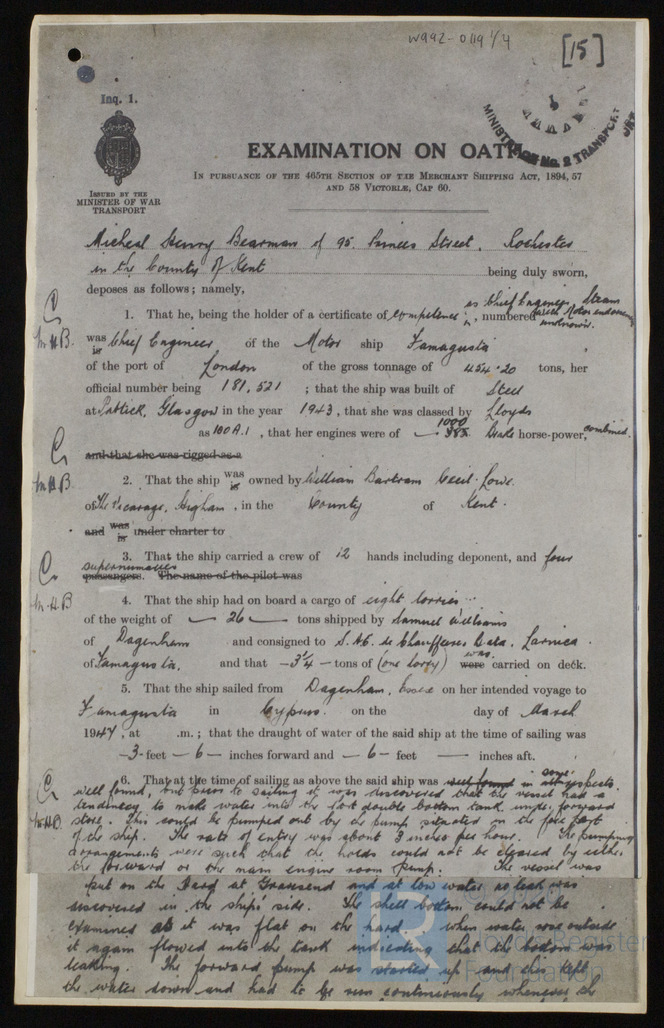 W992-0119 1/4
[15]
Inq. 1.
MINISTRY TRANSPORT
No. 2
EXAMINATION ON OATH
IN PURSUANCE OF THE 465TH SECTION OF THE MERCHANT SHIPPING ACT, 1894, 57
AND 58 VICTORIÆ, CAP 60.
ISSUED BY THE
MINISTER OF WAR
TRANSPORT
Micheal Henry Bearman of 95. Princes Street, Rochester
in the County of Kent being duly sworn,
deposes as follows; namely,
as Chief Engineer, Steam
1. That he, being the holder of a certificate of competence, numbered
with Motor endorsement
unknown.
M.H.B. was is Chief Engineer of the Motor ship Famagusta
of the port of London of the gross tonnage of 454.20 tons, her
official number being 181,521; that the ship was built of Steel
at Partick, Glasgow in the year 1943, that she was classed by Lloyds
1000
as 100 A.1, that her engines were of Brake horse-power, combined.
and that she was rigged as a
M.H.B. 2. That the ship was is owned by William Bartram Cecil-Lowe
of The Vicarage, Higham, in the County of Kent.
and was is under charter to
3. That the ship carried a crew of 12 hands including deponent, and four
supernumaries
passengers. The name of the pilot was
M.H.B. 4. That the ship had on board a cargo of eight lorries
of the weight of — 26 — tons shipped by Samuel Williams
of Dagenham and consigned to S.A.C. de Chauffeurs Larnica.
of Famagusta, and that —3¼— tons of (one lorry) was were carried on deck.
5. That the ship sailed from Dagenham, Essex on her intended voyage to
Famagusta in Cyprus. on the day of March
1947, at .m.; that the draught of water of the said ship at the time of sailing was
—3 feet —6— inches forward and —6— feet — inches aft.
6. That at the time of sailing as above the said ship was well found in all some respects.
M.H.B. well found, but prior to sailing it was discovered that the vessel had a
tendency to make water into the double bottom tank under forward
store. This could be pumped out by the pump situated in the fore part
of the ship. The rate of entry was about 3 inches per hour. The pumping
arrangements were such that the holds could not be cleared by either
the forward or the main engine room pump. The vessel was
put on the Hard at Gravesend and at low water no leak was
discovered in the ships side. The shell bottom could not be
examined as it was flat on the hard. When water rose outside
it again flowed into the tank indicating that the bottom was
leaking. The forward pump was started up and this kept
the water down and had to be run continuously whenever the
Register
Foundation